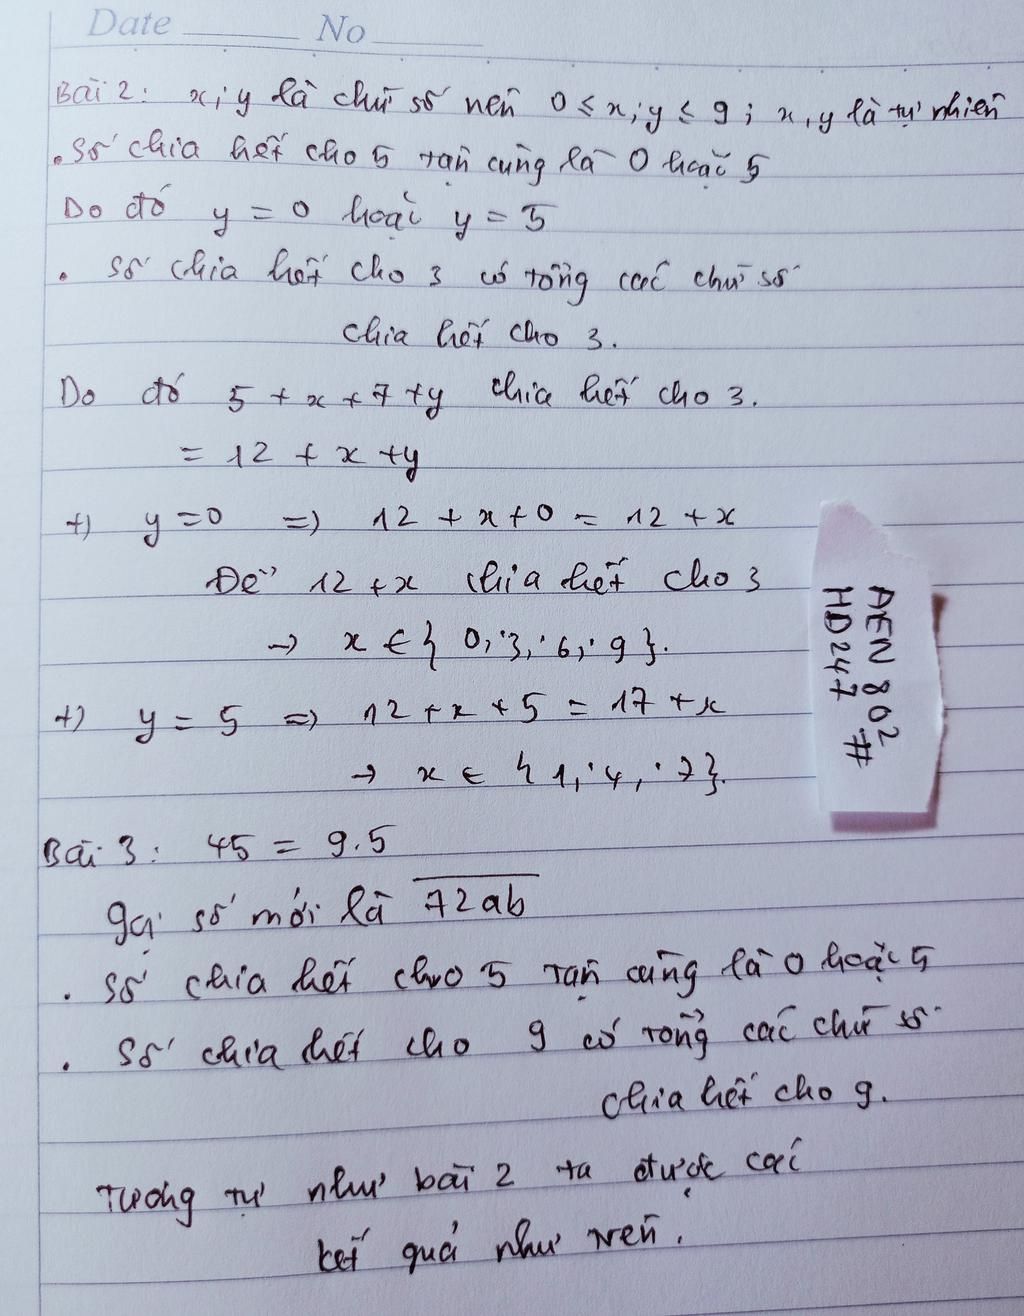 Date No
Bài 2: x; y là chữ số nên 0 ≤ x; y ≤ 9; x, y là tự nhiên
. Số chia hết cho 5 tận cùng là 0 hoặc 5
Do đó y = 0 hoặc y = 5
. Số chia hết cho 3 có tổng các chữ số
chia hết cho 3.
Do đó 5 + x + 7 + y chia hết cho 3.
= 12 + x + y
+) y = 0 => 12 + x + 0 = 12 + x
Để 12 + x chia hết cho 3
→ x ∈ { 0; 3; 6; 9 }.
+) y = 5 => 12 + x + 5 = 17 + x
→ x ∈ { 1; 4; 7 }.
AEN 802 #
HD247
Bài 3: 45 = 9.5
gọi số mới là 72ab
. Số chia hết cho 5 tận cùng là 0 hoặc 5
. Số chia hết cho 9 có tổng các chữ số
chia hết cho 9.
Tương tự như bài 2 ta được các
kết quả như trên.